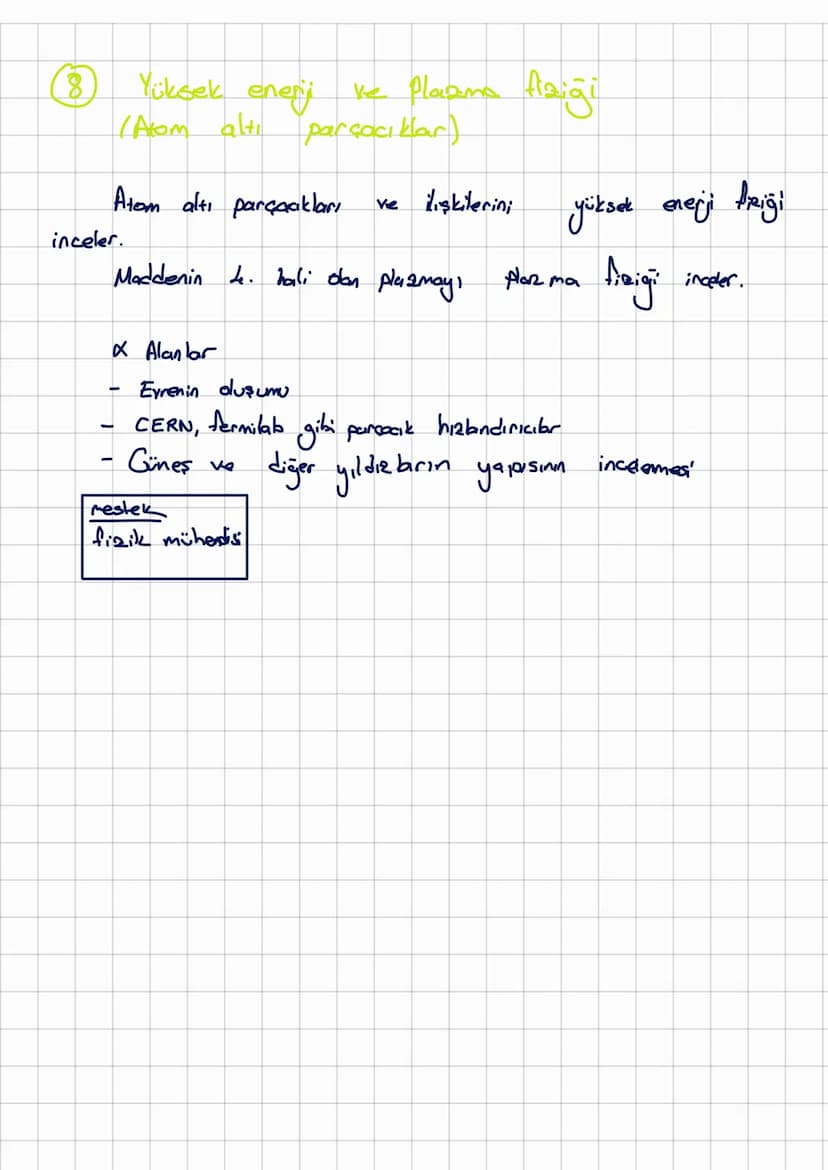 8 Yüksek enerji ve Plazma fiziği
(Atom altı parçacıklar)
Atom altı parçacıkları ve ilişkilerini yüksek enerji fiziği
inceler.
Maddenin 4. hali olan plazmayı plazma fiziği inceler.
α Alanlar
- Evrenin oluşumu
- CERN, fermilab gibi parçacık hızlandırıcılar
- Güneş ve diğer yıldızların yapısının incelemesi
meslek
fizik mühendis